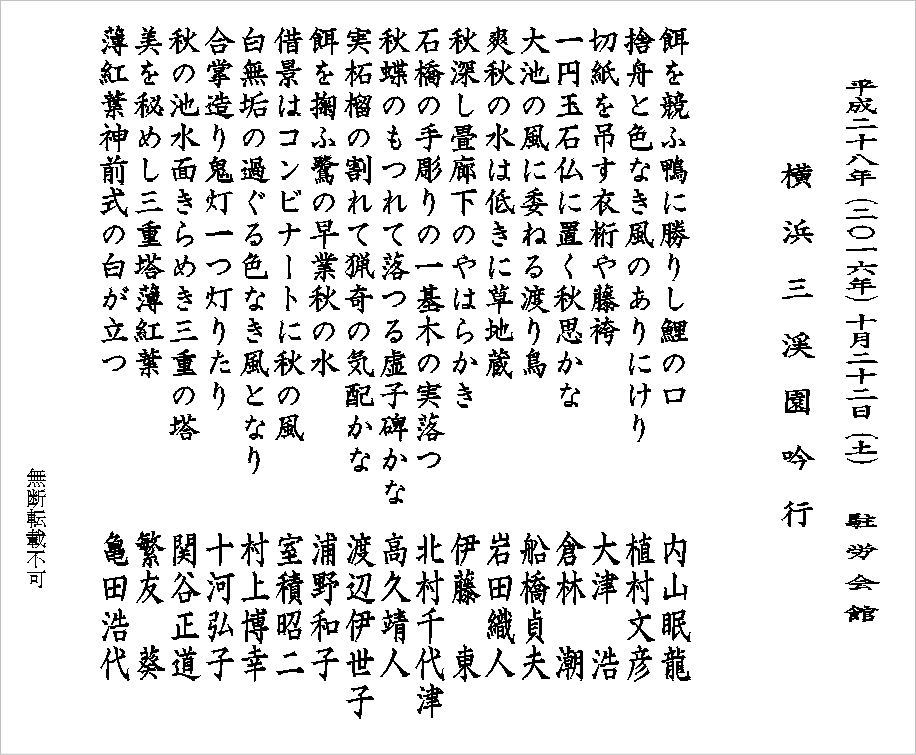 平成二十八年(二〇一六年)十月二十二日(土) 駐労会館
横浜三渓園吟行
餌を競ふ鴨に勝りし鯉の口 内山眠龍
捨舟と色なき風のありにけり 植村文彦
切紙を吊す衣桁や藤袴 大津浩
一円玉石仏に置く秋思かな 倉林潮
大池の風に委ねる渡り鳥 船橋貞夫
爽秋の水は低きに草地蔵 岩田織人
秋深し畳廊下のやはらかき 伊藤東
石橋の手彫りの一基木の実落つ 北村千代津
秋蝶のもつれて落つる虚子碑かな 高久靖人
実柘榴の割れて猟奇の気配かな 渡辺伊世子
餌を掬ふ鷺の早業秋の水 浦野和子
借景はコンビナートに秋の風 室積昭二
白無垢の過ぐる色なき風となり 村上博幸
合掌造り鬼灯一つ灯りたり 十河弘子
秋の池水面きらめき三重の塔 関谷正道
美を秘めし三重塔薄紅葉 繁友葵
薄紅葉神前式の白が立つ 亀田浩代
無断転載不可